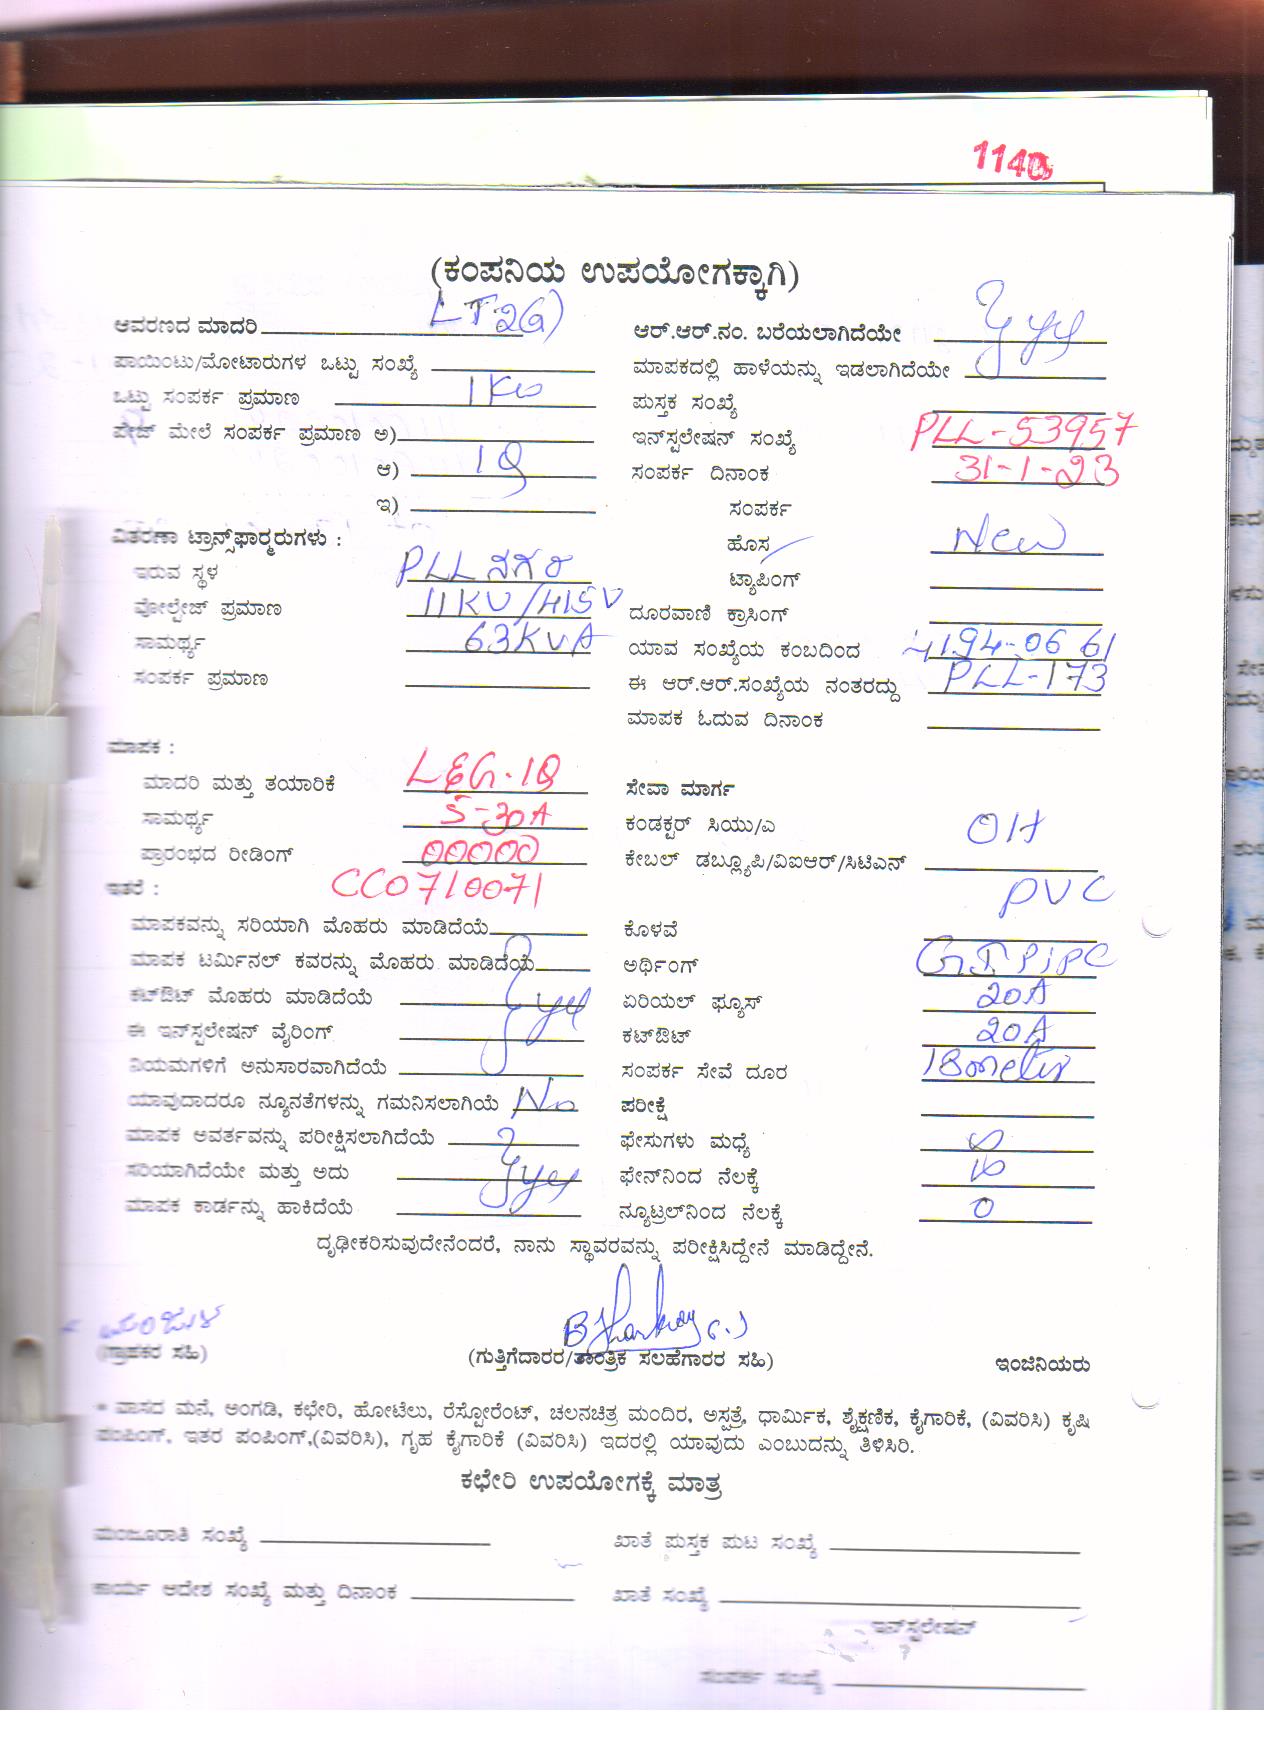 1140
(ಕಂಪನಿಯ ಉಪಯೋಗಕ್ಕಾಗಿ)
ಆವರಣದ ಮಾದರಿ LT2(a)
ಪಾಯಿಂಟು/ಮೋಟಾರುಗಳ ಒಟ್ಟು ಸಂಖ್ಯೆ
ಒಟ್ಟು ಸಂಪರ್ಕ ಪ್ರಮಾಣ 1Kw
ಪೇಜ್ ಮೇಲೆ ಸಂಪರ್ಕ ಪ್ರಮಾಣ ಅ)
ಆ) 1Q
ಇ)
ವಿತರಣಾ ಟ್ರಾನ್ಸ್‌ಫಾರ್ಮರುಗಳು :
ಇರುವ ಸ್ಥಳ PLL ನಗರ
ವೋಲ್ಟೇಜ್ ಪ್ರಮಾಣ 11KV/415V
ಸಾಮರ್ಥ್ಯ 63KVA
ಸಂಪರ್ಕ ಪ್ರಮಾಣ
ಮಾಪಕ :
ಮಾದರಿ ಮತ್ತು ತಯಾರಿಕೆ L&G-1Q
ಸಾಮರ್ಥ್ಯ 5-30A
ಪ್ರಾರಂಭದ ರೀಡಿಂಗ್ 00000
ಇತರೆ : CC0710071
ಮಾಪಕವನ್ನು ಸರಿಯಾಗಿ ಮೊಹರು ಮಾಡಿದೆಯೆ
ಮಾಪಕ ಟರ್ಮಿನಲ್ ಕವರನ್ನು ಮೊಹರು ಮಾಡಿದೆಯೆ
ಕಟ್‌ಔಟ್ ಮೊಹರು ಮಾಡಿದೆಯೆ yes
ಈ ಇನ್‌ಸ್ಟಲೇಷನ್ ವೈರಿಂಗ್
ನಿಯಮಗಳಿಗೆ ಅನುಸಾರವಾಗಿದೆಯೆ
ಯಾವುದಾದರೂ ನ್ಯೂನತೆಗಳನ್ನು ಗಮನಿಸಲಾಗಿಯೆ No
ಮಾಪಕ ಅವರ್ತವನ್ನು ಪರೀಕ್ಷಿಸಲಾಗಿದೆಯೆ
ಸರಿಯಾಗಿದೆಯೇ ಮತ್ತು ಅದು yes
ಮಾಪಕ ಕಾರ್ಡನ್ನು ಹಾಕಿದೆಯೆ
ಆರ್.ಆರ್.ನಂ. ಬರೆಯಲಾಗಿದೆಯೇ yes
ಮಾಪಕದಲ್ಲಿ ಹಾಳೆಯನ್ನು ಇಡಲಾಗಿದೆಯೇ
ಪುಸ್ತಕ ಸಂಖ್ಯೆ
ಇನ್‌ಸ್ಟಲೇಷನ್ ಸಂಖ್ಯೆ PLL-53957
ಸಂಪರ್ಕ ದಿನಾಂಕ 31-1-23
ಸಂಪರ್ಕ
ಹೊಸ New
ಟ್ಯಾಪಿಂಗ್
ದೂರವಾಣಿ ಕ್ರಾಸಿಂಗ್
ಯಾವ ಸಂಖ್ಯೆಯ ಕಂಬದಿಂದ 4194-0661
ಈ ಆರ್.ಆರ್.ಸಂಖ್ಯೆಯ ನಂತರದ್ದು PLL-173
ಮಾಪಕ ಓದುವ ದಿನಾಂಕ
ಸೇವಾ ಮಾರ್ಗ
ಕಂಡಕ್ಟರ್ ಸಿಯು/ಎ OH
ಕೇಬಲ್ ಡಬ್ಲ್ಯೂಪಿ/ವಿಐಆರ್/ಸಿಟಿಎನ್
ಕೊಳವೆ PVC
ಅರ್ಥಿಂಗ್ GI PiPe
ಏರಿಯಲ್ ಫ್ಯೂಸ್ 20A
ಕಟ್‌ಔಟ್ 20A
ಸಂಪರ್ಕ ಸೇವೆ ದೂರ 18 meter
ಪರೀಕ್ಷೆ
ಫೇಸುಗಳು ಮಧ್ಯೆ
ಫೇನ್‌ನಿಂದ ನೆಲಕ್ಕೆ
ನ್ಯೂಟ್ರಲ್‌ನಿಂದ ನೆಲಕ್ಕೆ 0
ದೃಢೀಕರಿಸುವುದೇನೆಂದರೆ, ನಾನು ಸ್ಥಾವರವನ್ನು ಪರೀಕ್ಷಿಸಿದ್ದೇನೆ ಮಾಡಿದ್ದೇನೆ.
ಮಂಜುಳ
(ಗ್ರಾಹಕರ ಸಹಿ) (ಗುತ್ತಿಗೆದಾರರ/ತಾಂತ್ರಿಕ ಸಲಹೆಗಾರರ ಸಹಿ) ಇಂಜಿನಿಯರು
* ವಾಸದ ಮನೆ, ಅಂಗಡಿ, ಕಛೇರಿ, ಹೋಟೆಲು, ರೆಸ್ಟೋರೆಂಟ್, ಚಲನಚಿತ್ರ ಮಂದಿರ, ಅಸ್ಪತ್ರೆ, ಧಾರ್ಮಿಕ, ಶೈಕ್ಷಣಿಕ, ಕೈಗಾರಿಕೆ, (ವಿವರಿಸಿ) ಕೃಷಿ
ಪಂಪಿಂಗ್, ಇತರ ಪಂಪಿಂಗ್,(ವಿವರಿಸಿ), ಗೃಹ ಕೈಗಾರಿಕೆ (ವಿವರಿಸಿ) ಇದರಲ್ಲಿ ಯಾವುದು ಎಂಬುದನ್ನು ತಿಳಿಸಿರಿ.
ಕಛೇರಿ ಉಪಯೋಗಕ್ಕೆ ಮಾತ್ರ
ಮಂಜೂರಾತಿ ಸಂಖ್ಯೆ ಖಾತೆ ಪುಸ್ತಕ ಪುಟ ಸಂಖ್ಯೆ
ಕಾರ್ಯ ಆದೇಶ ಸಂಖ್ಯೆ ಮತ್ತು ದಿನಾಂಕ ಖಾತೆ ಸಂಖ್ಯೆ
ಇನ್‌ಸ್ಟಲೇಷನ್
ಸಂಪರ್ಕ ಸಂಖ್ಯೆ